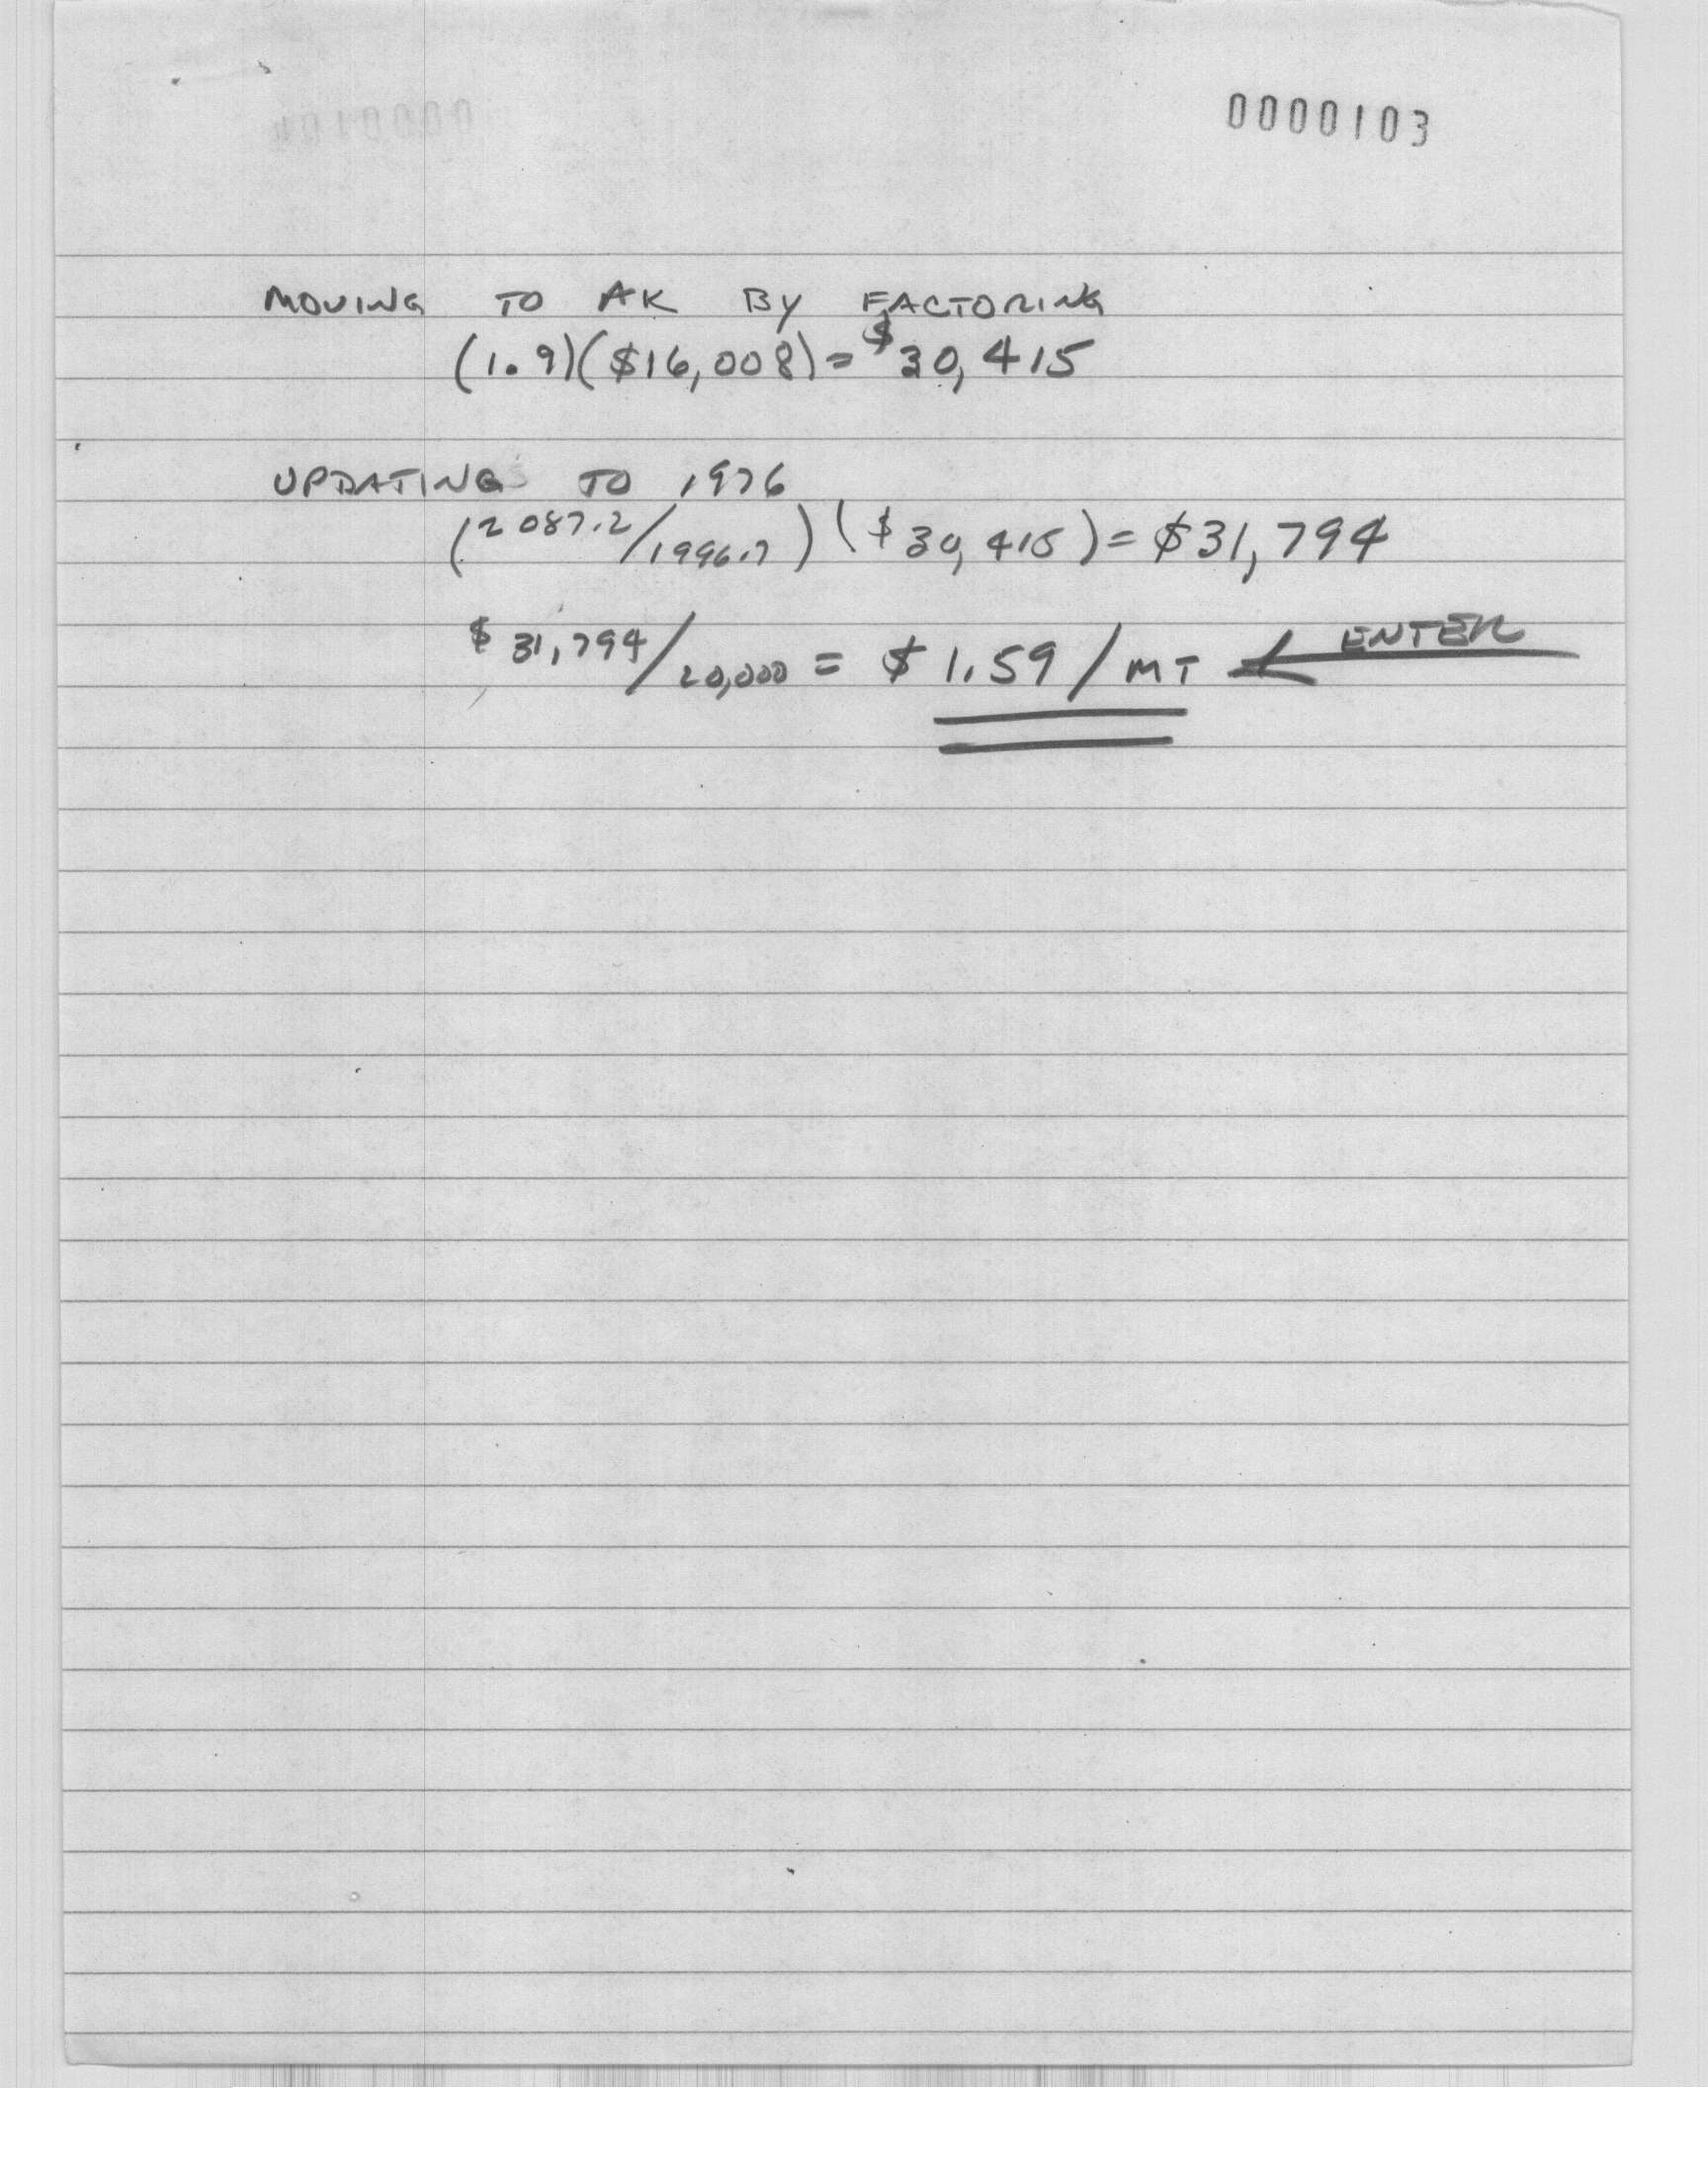 0000103
MOVING TO AK BY FACTORING
(1.9)($16,008)= $30,415
UPDATING TO 1976
(2087.2/1996.7)($30,415)= $31,794
$31,794/20,000 = $1.59/MT ← ENTER